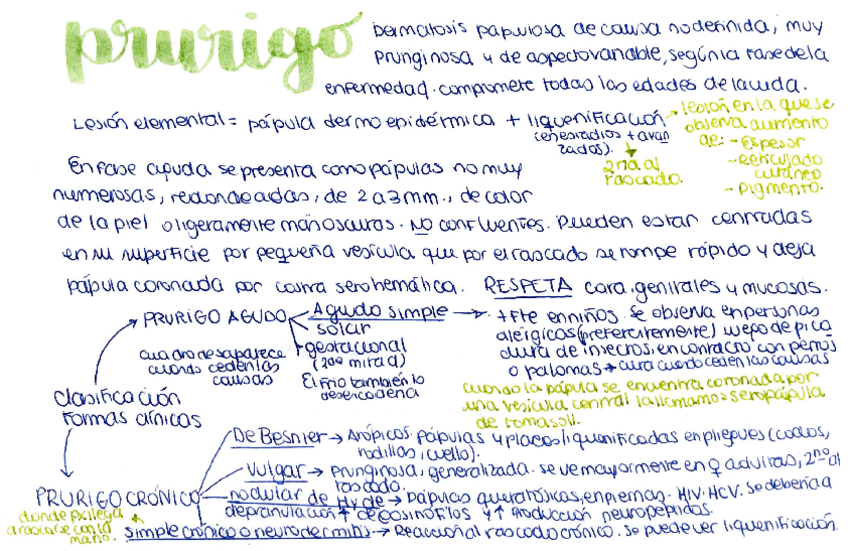 prurigo
Dermatosis papulosa de causa no definida, muy
pruriginosa y de aspecto variable, según la fase de la
enfermedad. compromete todas las edades de la vida.
Lesión elemental = pápula dermoepidérmica + liquenificación
(en estadíos + avan
zados).
2ria al
rascado.
lesión en la que se
observa aumento
de: - Espesor
- reticulado
cutáneo
- pigmento.
En fase aguda se presenta como pápulas no muy
numerosas, redondeadas, de 2 a 3 mm., de color
de la piel o ligeramente más oscuras. NO confluentes. Pueden estar centradas
en su superficie por pequeña vesícula que por el rascado se rompe rápido y deja
pápula coronada por costra serohemática. RESPETA cara, genitales y mucosas.
Clasificación
formas clínicas
PRURIGO AGUDO
cuadro desaparece
cuando ceden las
causas
Agudo simple
solar
gestacional
(2da mitad)
El frio también lo
desencadena
+ fte en niños. Se observa en personas
alérgicas (preferentemente) luego de pica
dura de insectos, en contacto con perros
o palomas → cura cuando ceden las causas
cuando la pápula se encuentra coronada por
una vesícula central la llamamos seropápula
de Tomasoli.
PRURIGO CRÓNICO
donde px llega
a rascarse con la
mano.
De Besnier → Atópicos pápulas y placas liquenificadas en pliegues (codos,
rodillas, cuello).
Vulgar → Pruriginosa, generalizada. se ve mayormente en ♀ adultas, 2rio al
rascado.
nodular de Hyde → Pápulas queratósicas, en piernas. HIV. HCV. Se debería a
depranulación ↑ de eosinófilos y ↑ producción neuropéptidos.
simple crónico o neurodermitis → Reacción al rascado crónico. Se puede ver liquenificación.